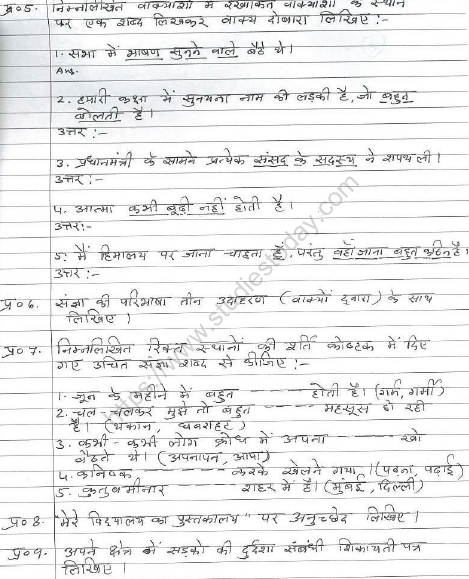 प्र०5. निम्नलिखित वाक्यांशों में रेखांकित वाक्यांशों के स्थान
पर एक शब्द लिखकर वाक्य दोबारा लिखिए :-
1. सभा में भाषण सुनने वाले बैठे थे।
Ans.
2. हमारी कक्षा में सुनयना नाम की लड़की है, जो बहुत
बोलती है।
उत्तर :-
3. प्रधानमंत्री के सामने प्रत्येक संसद के सदस्य ने शपथ ली।
उत्तर :-
4. आत्मा कभी बूढ़ी नहीं होती है।
उत्तर:-
5. मैं हिमालय पर जाना चाहता हूँ, परंतु वहाँ जाना बहुत कठिन है।
उत्तर :-
प्र०6. संज्ञा की परिभाषा तीन उदाहरण (वाक्यों द्वारा) के साथ
लिखिए।
प्र०7. निम्नलिखित रिक्त स्थानों की पूर्ति कोष्टक में दिए
गए उचित संज्ञा शब्द से कीजिए :-
1. जून के महीने में बहुत ------ होती है। (गर्म, गर्मी)
2. चल चलकर मुझे तो बहुत ------ महसूस हो रही
है। (थकान, घबराहट)
3. कभी-कभी लोग क्रोध में अपना ------ खो
बैठते थे। (अपनापन, आपा)
4. कनिष्क ------ करके खेलने गया। (पढ़ना, पढ़ाई)
5. कुतुबमीनार ------ शहर में है। (मुंबई, दिल्ली)
प्र०8. "मेरे विद्यालय का पुस्तकालय" पर अनुच्छेद लिखिए।
प्र०9. अपने क्षेत्र में सड़को की दुर्दशा संबंधी शिकायती पत्र
लिखिए।
https://www.studiestoday.com